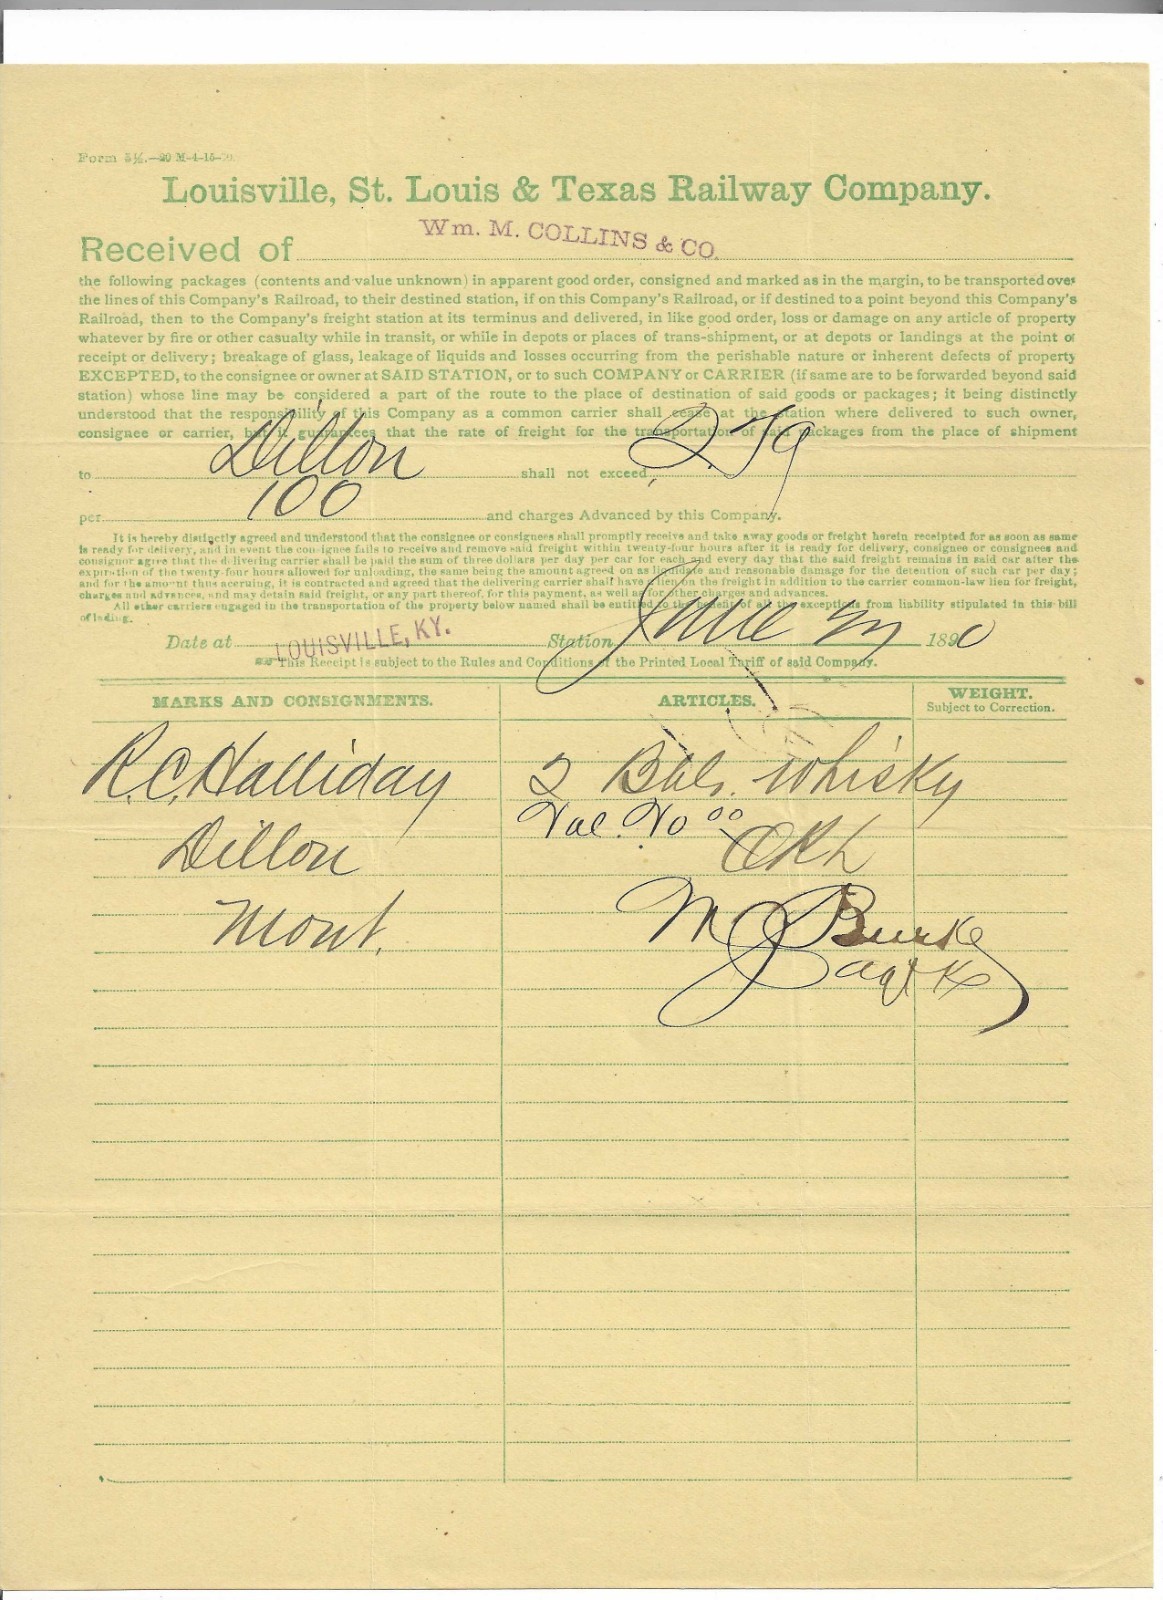 Form 5½.—20 M-4-15-
Louisville, St. Louis & Texas Railway Company.
Wm. M. COLLINS & CO.
Received of
the following packages (contents and value unknown) in apparent good order, consigned and marked as in the margin, to be transported over
the lines of this Company's Railroad, to their destined station, if on this Company's Railroad, or if destined to a point beyond this Company's
Railroad, then to the Company's freight station at its terminus and delivered, in like good order, loss or damage on any article of property
whatever by fire or other casualty while in transit, or while in depots or places of trans-shipment, or at depots or landings at the point of
receipt or delivery; breakage of glass, leakage of liquids and losses occurring from the perishable nature or inherent defects of property
EXCEPTED, to the consignee or owner at SAID STATION, or to such COMPANY or CARRIER (if same are to be forwarded beyond said
station) whose line may be considered a part of the route to the place of destination of said goods or packages; it being distinctly
understood that the responsibility of this Company as a common carrier shall cease at the station where delivered to such owner,
consignee or carrier, but it guarantees that the rate of freight for the transportation of said packages from the place of shipment
to Dillon shall not exceed
per 100 and charges Advanced by this Company.
It is hereby distinctly agreed and understood that the consignee or consignees shall promptly receive and take away goods or freight herein receipted for as soon as same
is ready for delivery, and in event the consignee fails to receive and remove said freight within twenty-four hours after it is ready for delivery, consignee or consignees and
consignor agree that the delivering carrier shall be paid the sum of three dollars per day per car for each and every day that the said freight remains in said car after the
expiration of the twenty-four hours allowed for unloading, the same being the amount agreed on as liquidate and reasonable damage for the detention of such car per day;
and for the amount thus acruing, it is contracted and agreed that the delivering carrier shall have a lien on the freight in addition to the carrier common-law lien for freight,
charges and advances, and may detain said freight, or any part thereof, for this payment, as well as for other charges and advances.
All other carriers engaged in the transportation of the property below named shall be entitled to the benefit of all the exceptions from liability stipulated in this bill
of lading.
Date at LOUISVILLE, KY. Station June 1890
This Receipt is subject to the Rules and Conditions of the Printed Local Tariff of said Company.
MARKS AND CONSIGNMENTS. ARTICLES. WEIGHT.
Subject to Correction.
R.C. Halliday 2 Bbls. Whisky
Val.
Dillon ORL
Mont. M J Burke
agt